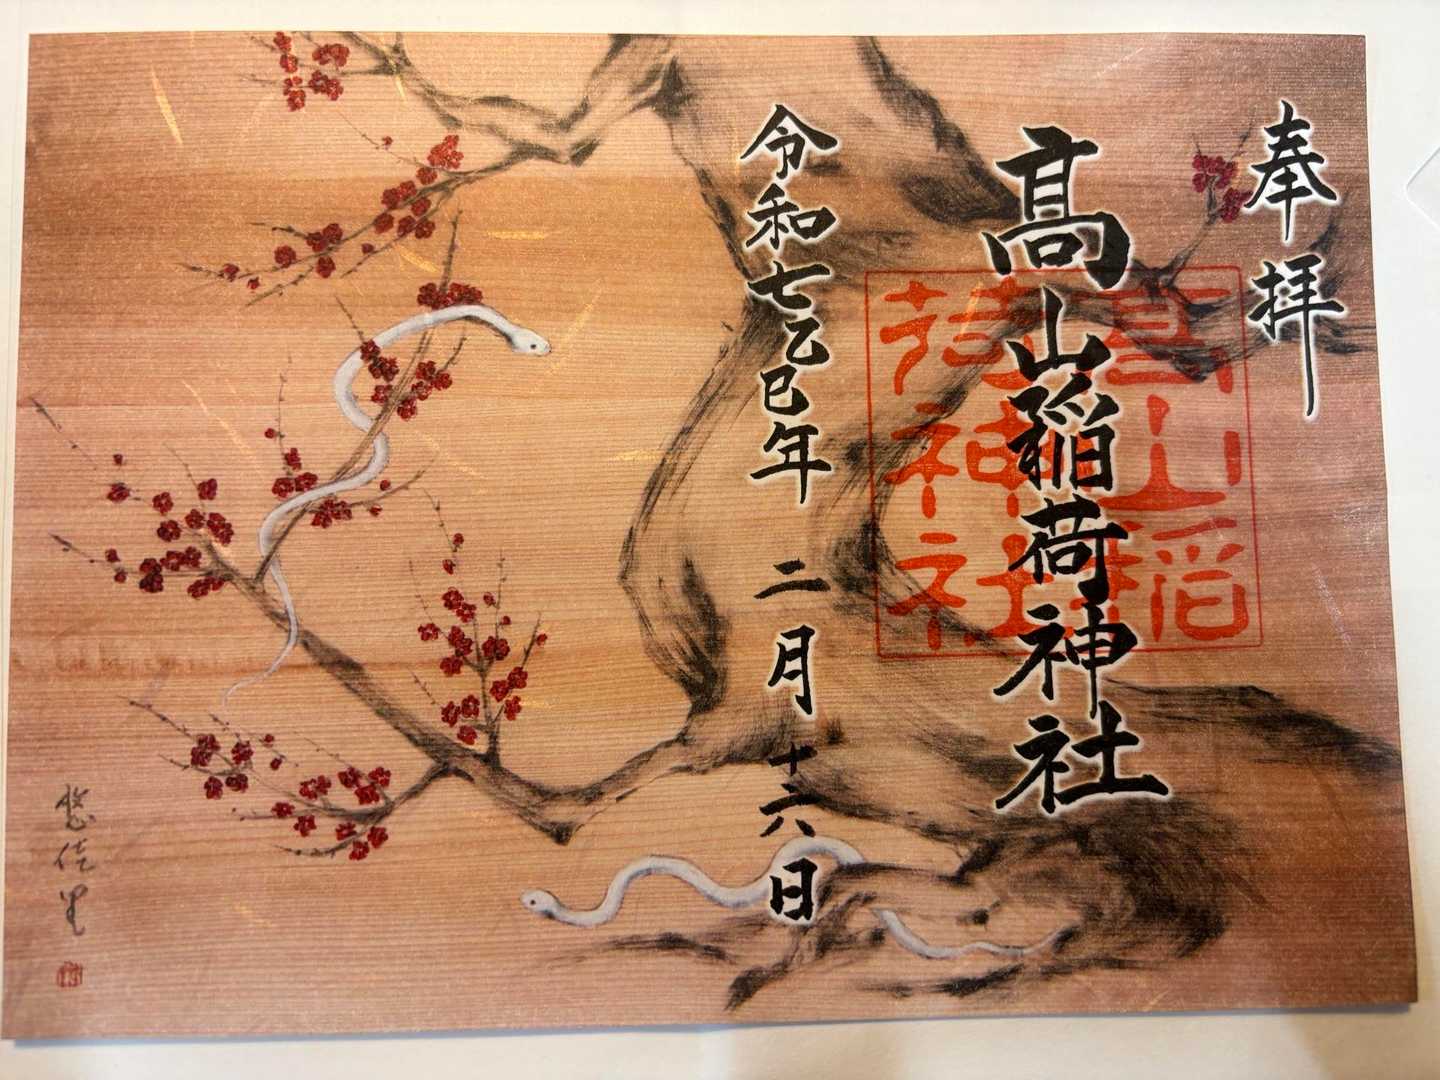 奉拝
髙山稲荷神社
高山稲
荷神社
令和七乙巳年 二月十六日